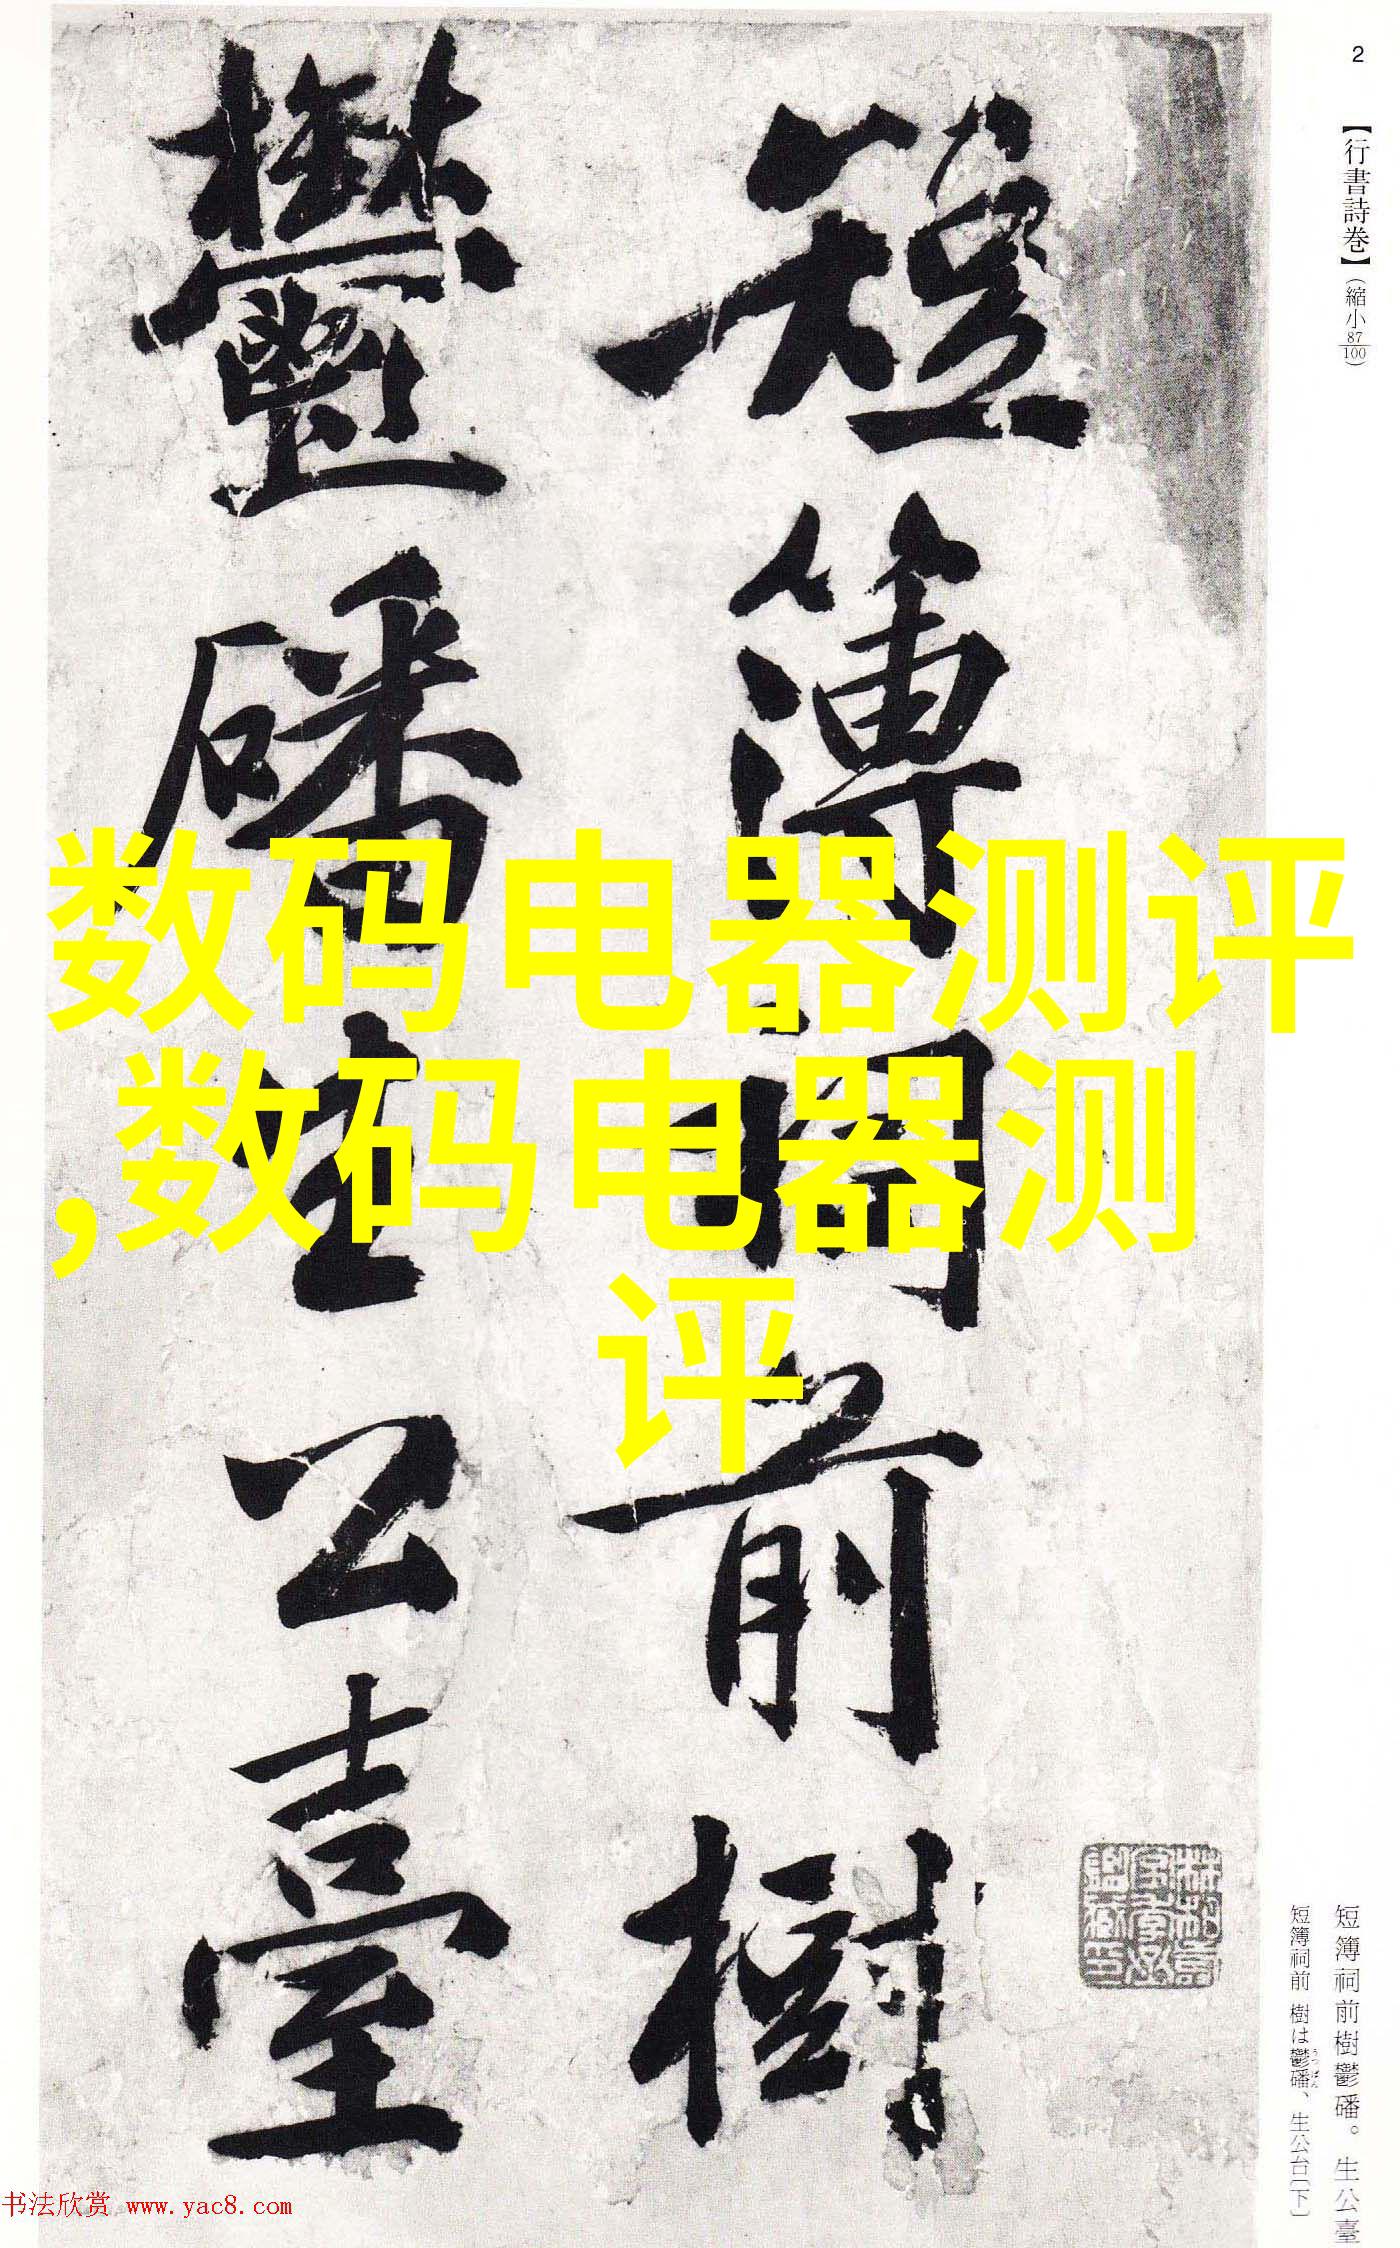 2
【行書詩巻】（縮小87/100）
短簿祠前樹
鬱磻生公臺
数码电器测评
,数码电器测
评
短簿祠前樹鬱磻。生公臺
短簿祠前 樹は鬱磻、生公台〔下〕
うっぱん
书法欣赏 www.yac8.com